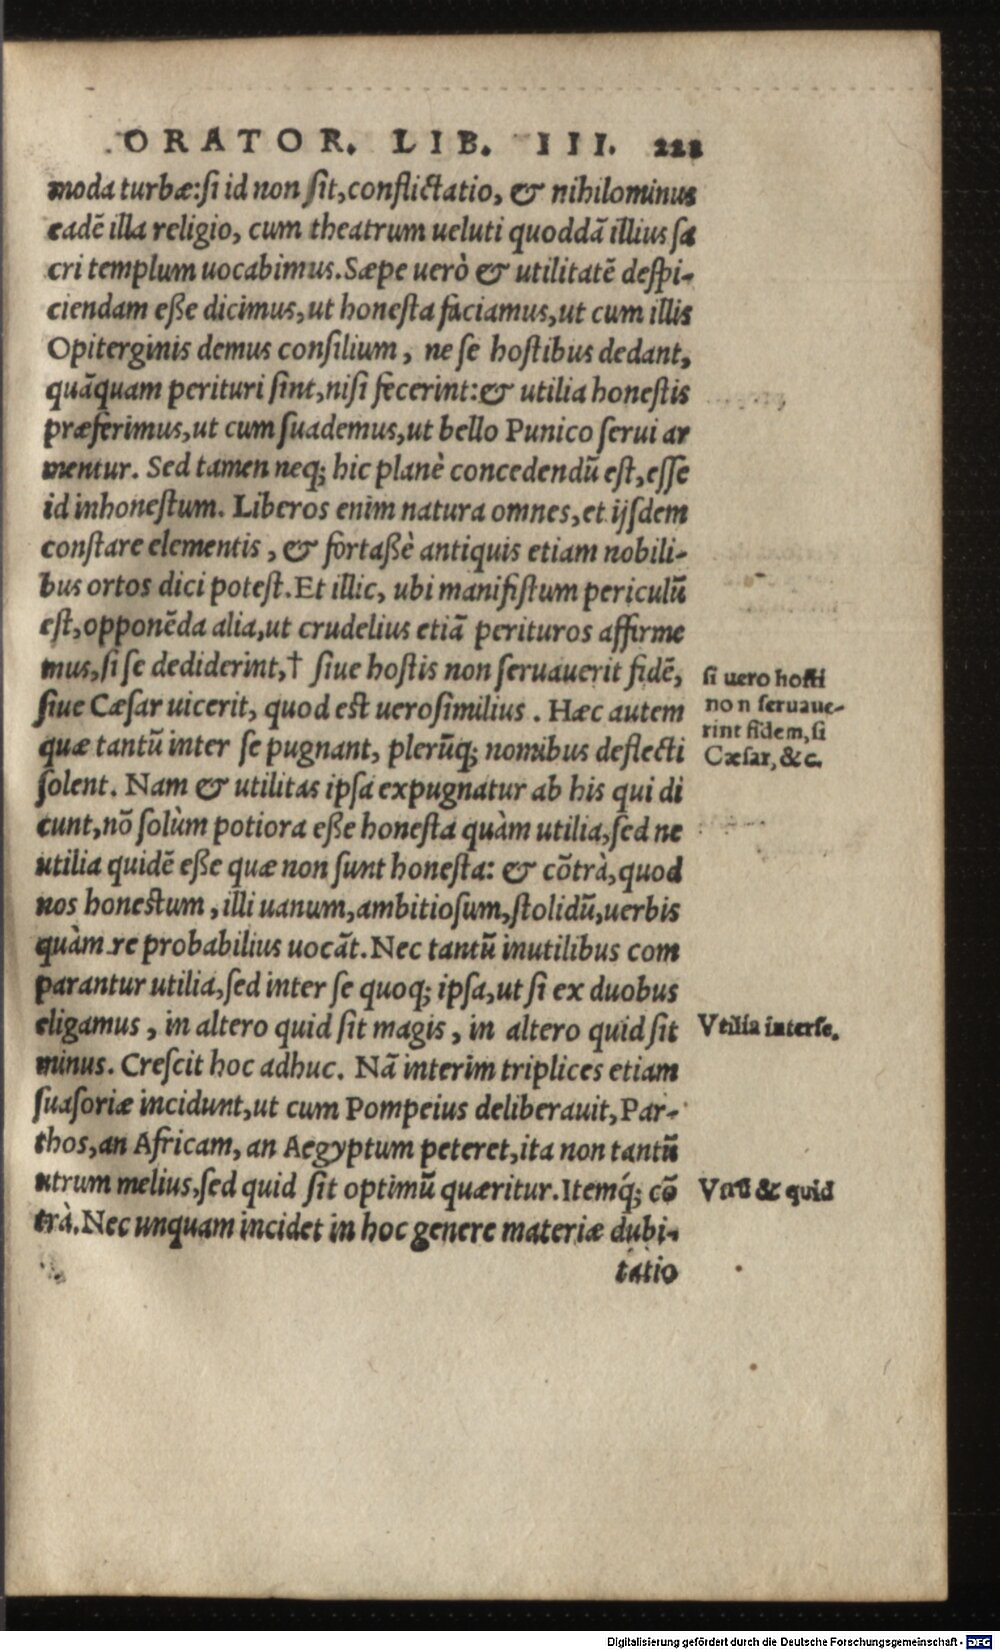 ORATOR. LIB. III. 222
moda turbæ:ſi id non ſit,conflictatio, & nihilominus
eadē illa religio, cum theatrum ueluti quoddā illius ſa
cri templum uocabimus.Sæpe uerò & utilitatē deſpi-
ciendam eße dicimus,ut honeſta faciamus,ut cum illis
Opiterginis demus conſilium, ne ſe hoſtibus dedant,
quāquam perituri ſint,niſi fecerint:& utilia honeſtis
præferimus,ut cum ſuademus,ut bello Punico ſerui ar
mentur. Sed tamen neq; hic planè concedendū eſt,eſſe
id inhoneſtum. Liberos enim natura omnes,et ijſdem
conſtare elementis, & fortaßè antiquis etiam nobili-
bus ortos dici poteſt.Et illic, ubi manifiſtum periculū
eſt,opponēda alia,ut crudelius etiā perituros affirme
mus,ſi ſe dediderint,† ſiue hoſtis non ſeruauerit fidē,
ſiue Cæſar uicerit, quod eſt ueroſimilius. Hæc autem
quæ tantū inter ſe pugnant, plerūq; nomibus deflecti
ſolent. Nam & utilitas ipſa expugnatur ab his qui di
cunt,nō ſolùm potiora eße honeſta quàm utilia,ſed ne
utilia quidē eße quæ non ſunt honeſta: & cōtrà,quod
nos honeſtum, illi uanum,ambitioſum,ſtolidū,uerbis
quàm re probabilius uocāt.Nec tantū inutilibus com
parantur utilia,ſed inter ſe quoq; ipſa,ut ſi ex duobus
eligamus, in altero quid ſit magis, in altero quid ſit
minus. Creſcit hoc adhuc. Nā interim triplices etiam
ſuaſoriæ incidunt,ut cum Pompeius deliberauit,Par-
thos,an Africam, an Aegyptum peteret,ita non tantū
utrum melius,ſed quid ſit optimū quæritur.Itemq́; cō
trà.Nec unquam incidet in hoc genere materiæ dubi-
tatio
ſi uero hoſti
non ſeruaue-
rint fidem,ſi
Cæſar, &c.
Vtilia interſe.
& quid
Digitalisierung gefördert durch die Deutsche Forschungsgemeinschaft - DFG